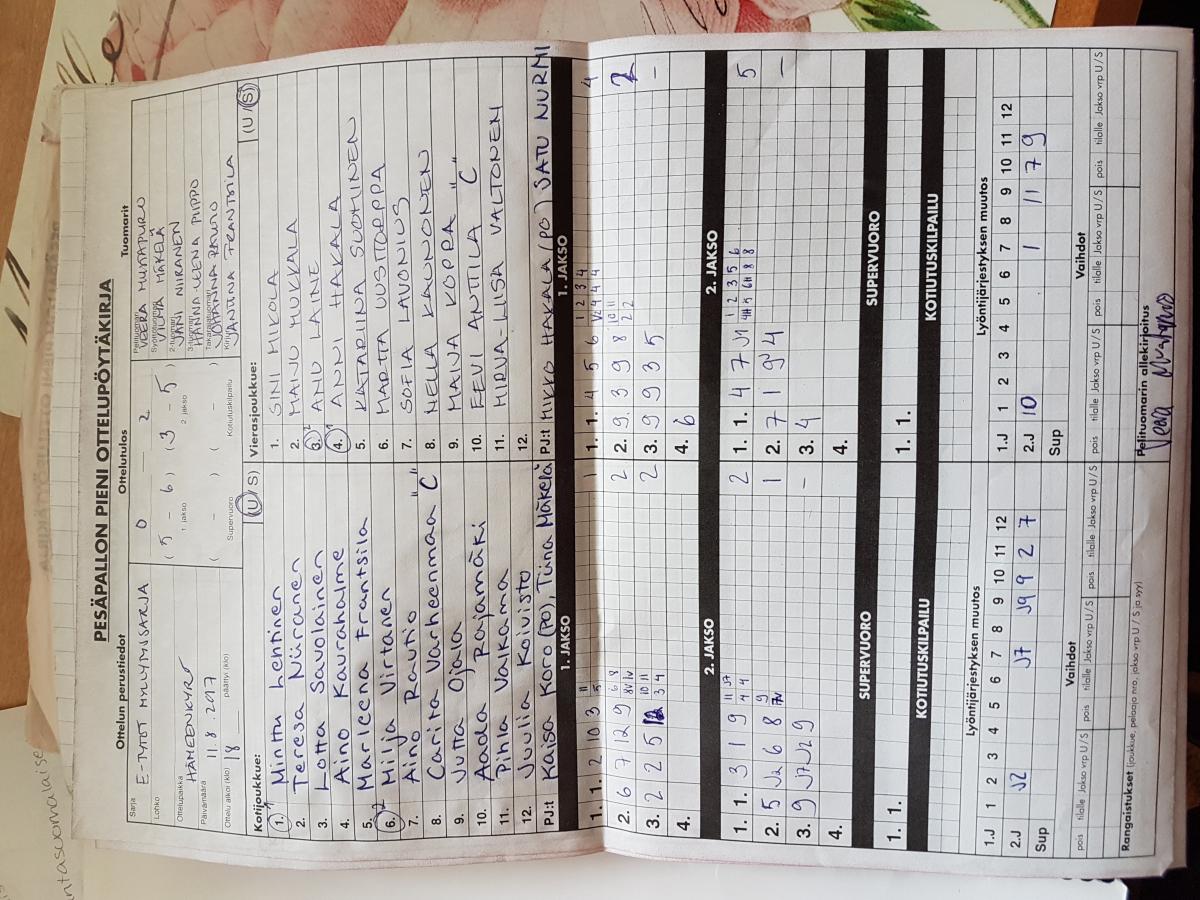 PESÄPALLON PIENI OTTELUPÖYTÄKIRJA
Ottelun perustiedot
Sarja
E-TYTÖT MYLLYMYSARJA
Lohko
Ottelupaikka
HÄMEENKYRÖ
Päivämäärä
11.8.2017
Ottelu alkoi (klo) 18 päättyi (klo)
Ottelutulos
0 — 2
(5 - 6) (3 - 5)
1 jakso 2 jakso
( - ) ( - )
Supervuoro Kotiutuskilpailu
Tuomarit
Pelituomari
VEERA MUSTAPURO
Syöttötuomari
VILMA MÄKELÄ
2-tuomari
JANI NIIRANEN
3-tuomari
HANNA-LEENA PIIPPO
Takarajatuomari
JOHANNA RAUNIO
Kirjuri
JANTINA FRANTSILA
Kotijoukkue: (U / S)
1. Minttu Lehtinen
2. Teresa Niiranen
3. Lotta Savolainen
4. Aino Kaurahalme
5. Marleena Frantsila
6. Milja Virtanen
7. Aino Rautio
8. Carita Varheenmaa "C"
9. Jutta Ojala
10. Aada Rajamäki
11. Pihla Valkama
12. Juulia Koivisto
PJ:t Kaisa Koro (PO), Tiina Mäkelä
Vierasjoukkue: (U / S)
1. SINI MIKOLA
2. MAINU MUKKALA
3. ANU LAINE
4. ANNI HAKALA
5. KATARIINA SUOMINEN
6. MARTTA UUSITORPPA
7. SOFIA LAVONIUS
8. NELLA KAUNONEN
9. MAIJA KOPPA
10. EEVI ANTTILA "C"
11. MIRVA-LIISA VALTONEN
12.
PJ:t MIKKO HAKALA (PO) SATU NURMI
1. JAKSO
1. 1. 2 10 3 11 5 1
2. 6 7 12 9 2
3. 2 2 5 10 11 3 4 2
4.
1. JAKSO
1. 1. 4 5 6 1 2 3 4 V2 4 4 4 4
2. 9 3 9 8 10 11 2 2 2
3. 9 9 3 5 –
4. 6
2. JAKSO
1. 1. 3 1 9 11 J7 4 4 2
2. 5 J2 6 8 9 7V 1
3. 9 J7 J2 9 –
4.
2. JAKSO
1. 1. 4 7 J1 1 2 3 5 6 5
2. 7 1 9 4 –
3. 4
4.
SUPERVUORO
1. 1.
SUPERVUORO
1. 1.
KOTIUTUSKILPAILU
KOTIUTUSKILPAILU
Lyöntijärjestyksen muutos
1.J 1 2 3 4 5 6 7 8 9 10 11 12
2.J J2 J7 J9 9 2 7
Sup
Lyöntijärjestyksen muutos
1.J 1 2 3 4 5 6 7 8 9 10 11 12
2.J 10 1 11 7 9
Sup
Vaihdot
pois tilalle Jakso vrp U / S pois tilalle Jakso vrp U / S pois tilalle Jakso vrp U / S
Vaihdot
pois tilalle Jakso vrp U / S pois tilalle Jakso vrp U / S pois tilalle Jakso vrp U / S
Rangaistukset (joukkue, pelaaja nro, jakso vrp U / S ja syy)
Pelituomarin allekirjoitus
Veera Mustapuro